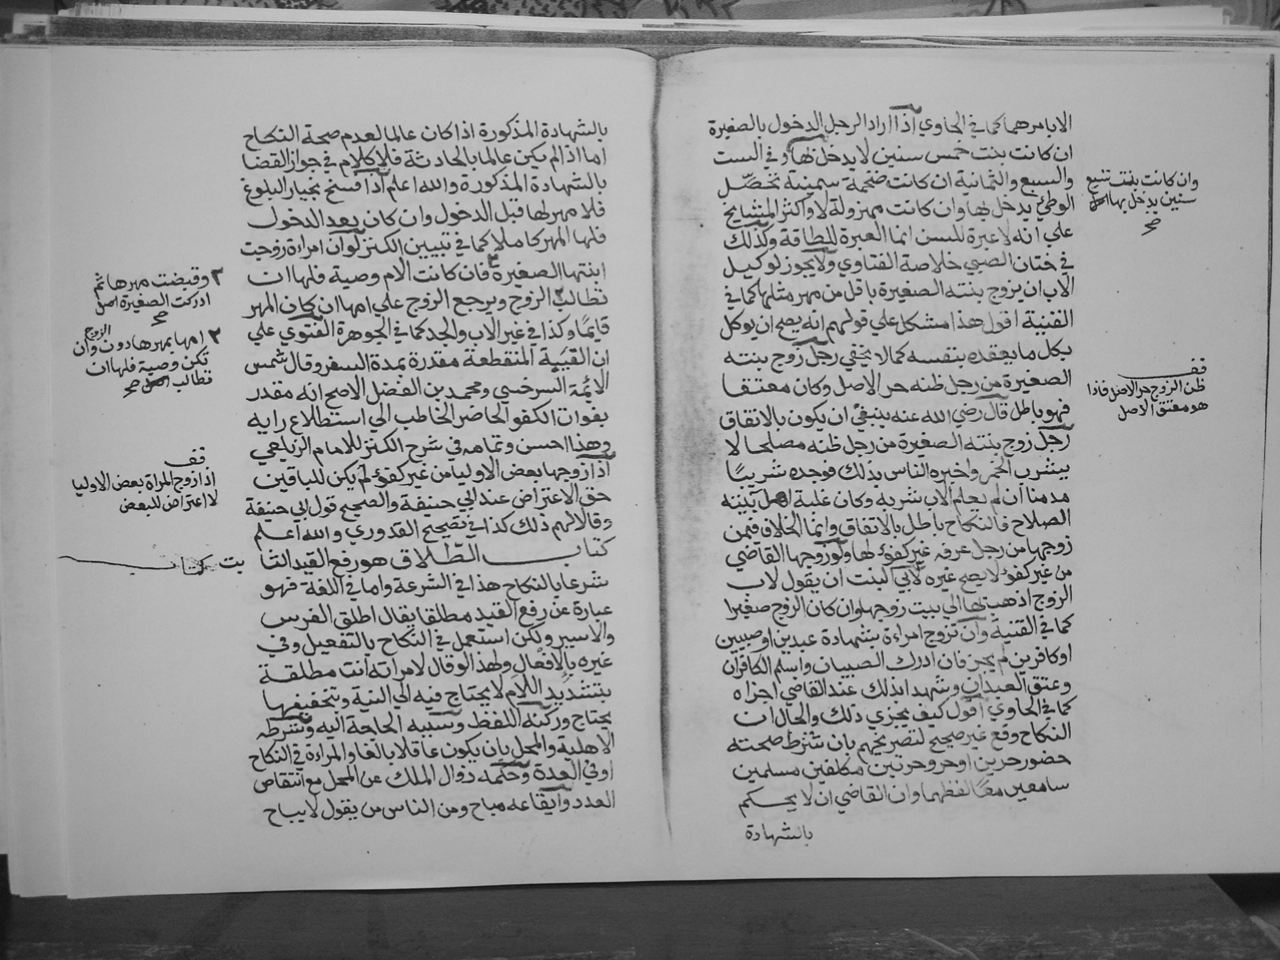 الا بامرهما كما في الحاوي اذا اراد الرجل الدخول بالصغيرة
ان كانت بنت خمس سنين لا يدخل بها وفي الست
والسبع والثمانية ان كانت ضخمة سمينة تحصل
الوطئ يدخل بها وان كانت مهزولة لا واكثر المشايخ
علي انه لا عبرة للسن انما العبرة للطاقة وكذلك
في ختان الصبي خلاصة الفتاوي ولا يجوز لوكيل
الاب ان يزوج بنته الصغيرة باقل من مهر مثلها كما في
القنية اقول هذا مشكل علي قولهم انه يصح ان يوكل
بكل ما يعقده بنفسه كما لا يخفي رجل زوج بنته
الصغيرة من رجل ظنه حر الاصل وكان معتقا
فهو باطل قال رضي الله عنه ينبغي ان يكون بالاتفاق
رجل زوج بنته الصغيرة من رجل ظنه مصلحا لا
يشرب الخمر واخبره الناس بذلك فوجده شريبا
مدمنا ان لم يعلم الاب بشربه وكان غلبة اهل بيته
الصلاح فالنكاح باطل بالاتفاق وانما الخلاف فيمن
زوجها من رجل عرفه غير كفؤ لها ولو زوجها القاضي
من غير كفؤ لا يصح غيره لابي البنت ان يقول لاب
الزوج اذهب بها الي بيت زوجها وان كان الزوج صغيرا
كما في القنية وان تزوج امراءة بشهادة عبدين او صبيين
او كافرين لم يجز فان ادرك الصبيان واسلم الكافران
وعتق العبدان وشهدا بذلك عند القاضي اجزاه
كما في الحاوي اقول كيف يجزي ذلك والحال ان
النكاح وقع غير صحيح لتصريحهم بان شرط صحته
حضور حرين او حر وحرتين مكلفين مسلمين
سامعين معا لفظهما وان القاضي ان لا يحكم
بالشهادة
وان كانت بنت تسع
سنين يدخل بها اصل
صح
قف
ظن الزوج حر الاصل فاذا
هو معتق الاصل
بالشهادة المذكورة اذا كان عالما لعدم صحة النكاح
اما اذا لم يكن عالما بالحادثة فلا كلام في جواز القضا
بالشهادة المذكورة والله اعلم اذا فسخ بخيار البلوغ
فلا مهر لها قبل الدخول وان كان بعد الدخول
فلها المهر كاملا كما في تبيين الكنز لو ان امراءة زوجت
ابنتها الصغيرة ٢ فان كانت الام وصية فلها ان
تطالب الزوج ويرجع الزوج علي امها ان كان المهر
قايما وكذا في غير الاب والجد كما في الجوهرة الفتوي علي
ان الغيبة المنقطعة مقدرة بمدة السفر وقال شمس
الائمة السرخسي ومحمد بن الفضل الاصح انه مقدر
بفوات الكفو الحاضر الخاطب الي استطلاع رايه
وهذا احسن وتمامه في شرح الكنز للامام الزيلعي
اذا زوجها بعض الاوليا من غير كفؤ لم يكن للباقين
حق الاعتراض عند ابي حنيفة والصحيح قول ابي حنيفة
وقالا لهم ذلك كذا في تصحيح القدوري والله اعلم
كتاب الطلاق هو رفع القيد الثا بت
شرعا بالنكاح هذا في الشرعة واما في اللغة فهو
عبارة عن رفع القيد مطلقا يقال اطلق الفرس
والاسير ولكن استعمل في النكاح بالتفعيل وفي
غيره بالافعال ولهذا لو قال لامراته انت مطلقة
بتشديد اللام لا يحتاج فيه الي النية وتخفيفها
يحتاج وركنه اللفظ وسببه الحاجة اليه وشرطه
الاهلية والمحل بان يكون عاقلا بالغا والمراءة في النكاح
او في العدة وحكمه زوال الملك عن المحل مع انتقاص
العدد وايقاعه مباح ومن الناس من يقول لا يباح
٢ وقبضت مهرها ثم
ادركت الصغيرة اصل
صح
٢ امها بمهرها دون الزوج وان
تكن وصية فلها ان
تطالب صح
قف
اذا زوج المراة بعض الاوليا
لا اعتراض للبعض
كتاب